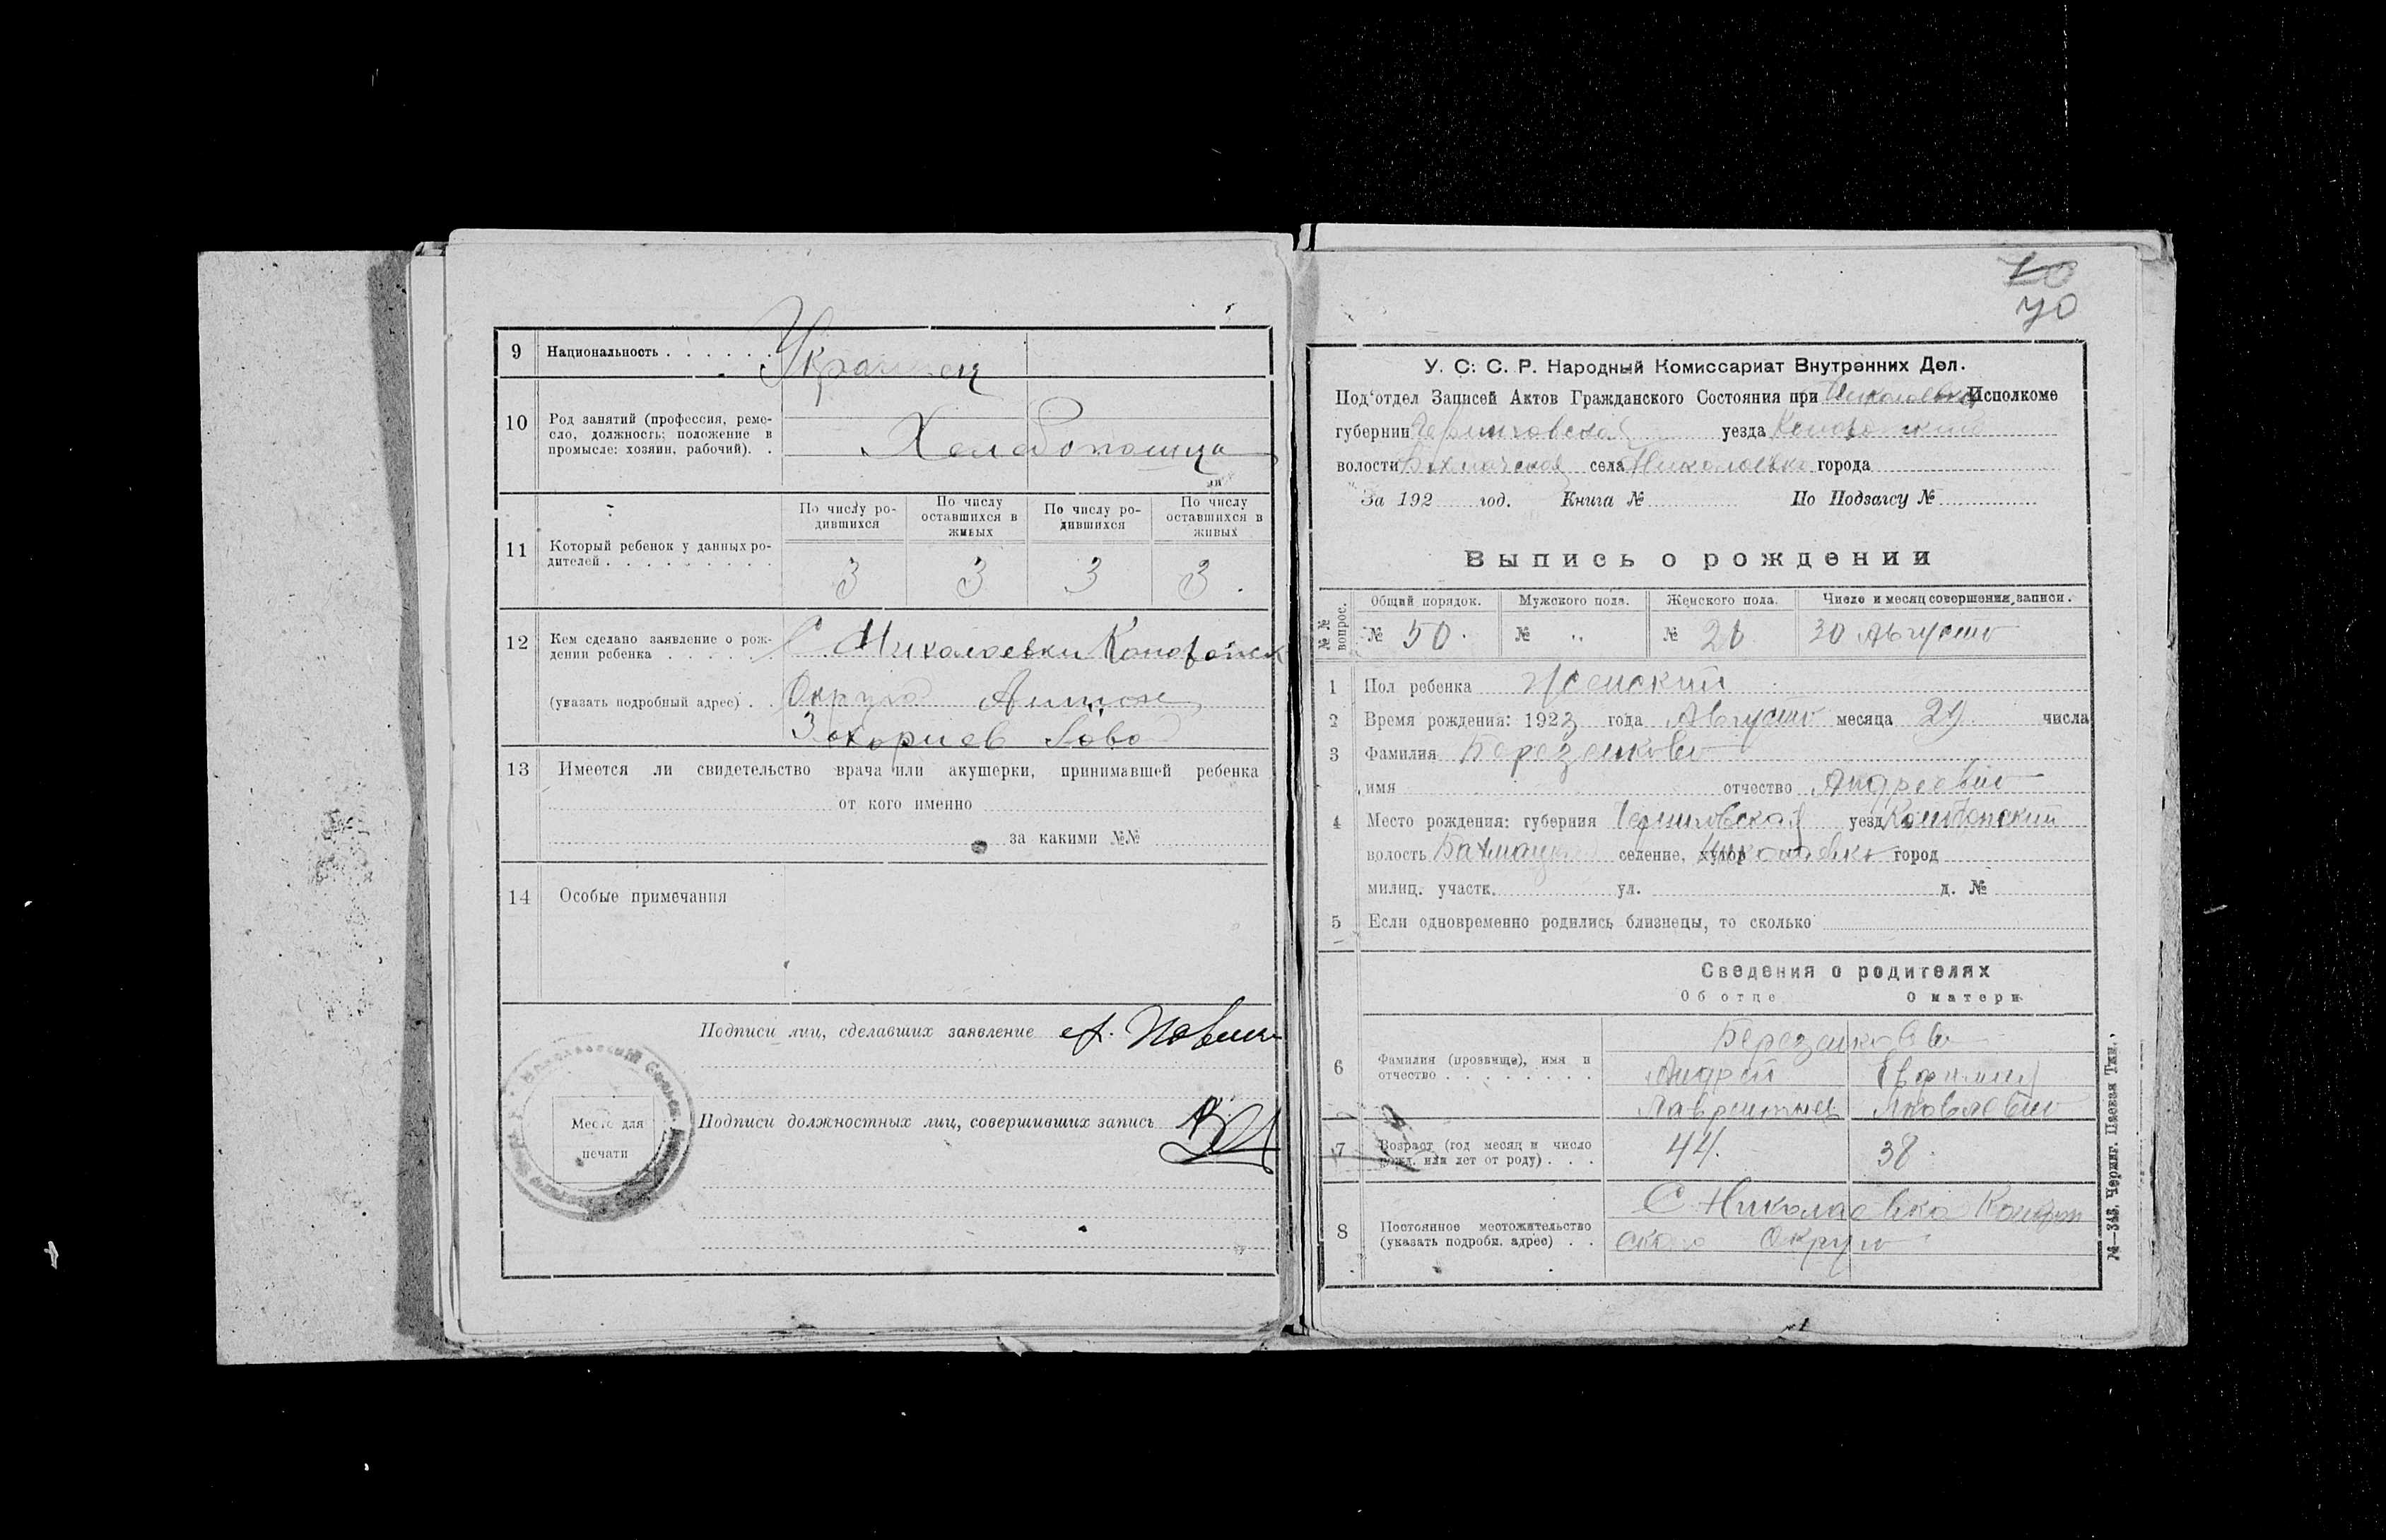 9 Национальность . . . . . . Украинец
10 Род занятий (профессия, реме-
сло, должность; положение в
промысле: хозяин, рабочий). .
Хелебопашца
11 Который ребенок у данных ро-
дителей . . . . . . . . . .
По числу ро-
дившихся
По числу
оставшихся в
живых
По числу ро-
дившихся
По числу
оставшихся в
живых
3 3 3 3
12 Кем сделано заявление о рож-
дении ребенка . . . . . .
С Николоевки Конотопск
(указать подробный адрес) . .
Округа Антон
Захориев
13 Имеется ли свидетельство врача или акушерки, принимавшей ребенка
от кого именно
за какими №№
14 Особые примечания
Подписи лиц, сделавших заявление
Подписи должностных лиц, совершивших запись
Место для
печати
70
70
У. С. С. Р. Народный Комиссариат Внутренних Дел.
Под'отдел Записей Актов Гражданского Состояния при Исполкоме
губернии Черниговской уезда Конотопский
волости Бахмачской села Николоевка города
За 192 год. Книга № По Подзагсу №
Выпись о рождении
№№ вопрос.
Общий порядок. Мужского пола. Женского пола. Число и месяц совершения записи.
№ 50. № „ № 28 30 Августа
1 Пол ребенка Женский
2 Время рождения: 1923 года Августа месяца 29 числа
3 Фамилия Березенкова
имя отчество Андреевна
4 Место рождения: губерния Черниговская уезд Конотопский
волость селение, хутор Николаевка город
милиц. участк. ул. д. №
5 Если одновременно родились близнецы, то сколько
Сведения о родителях
Об отце О матери
6 Фамилия (прозвище), имя и
отчество . . . . . . . .
Березенковы
Андрей Евфимия
Лаврентиев Яковлевна
7 Возраст (год месяц и число
рожд. или лет от роду) . . .
44. 38.
8 Постоянное местожительство
(указать подробн. адрес) . .
С Николаевка Конотоп
ского Округа
№—343. Черниг. Паевая Тип.